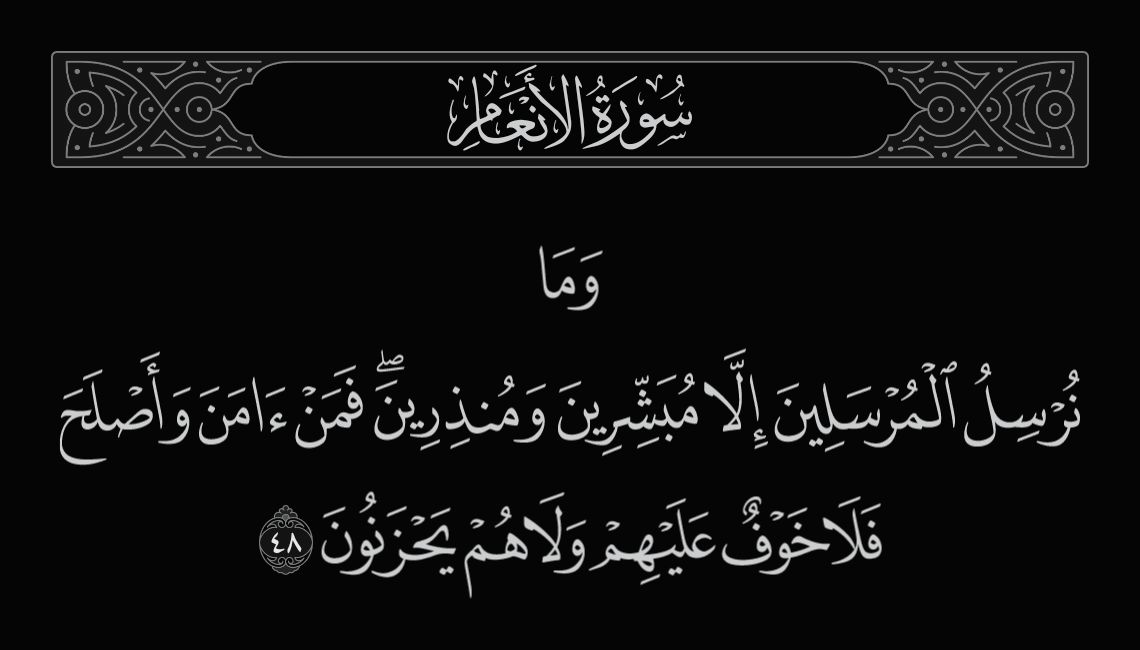 سُورَةُ الأَنْعَامِ
وَمَا
نُرْسِلُ ٱلْمُرْسَلِينَ إِلَّا مُبَشِّرِينَ وَمُنذِرِينَۖ فَمَنْ ءَامَنَ وَأَصْلَحَ
فَلَا خَوْفٌ عَلَيْهِمْ وَلَا هُمْ يَحْزَنُونَ ٤٨